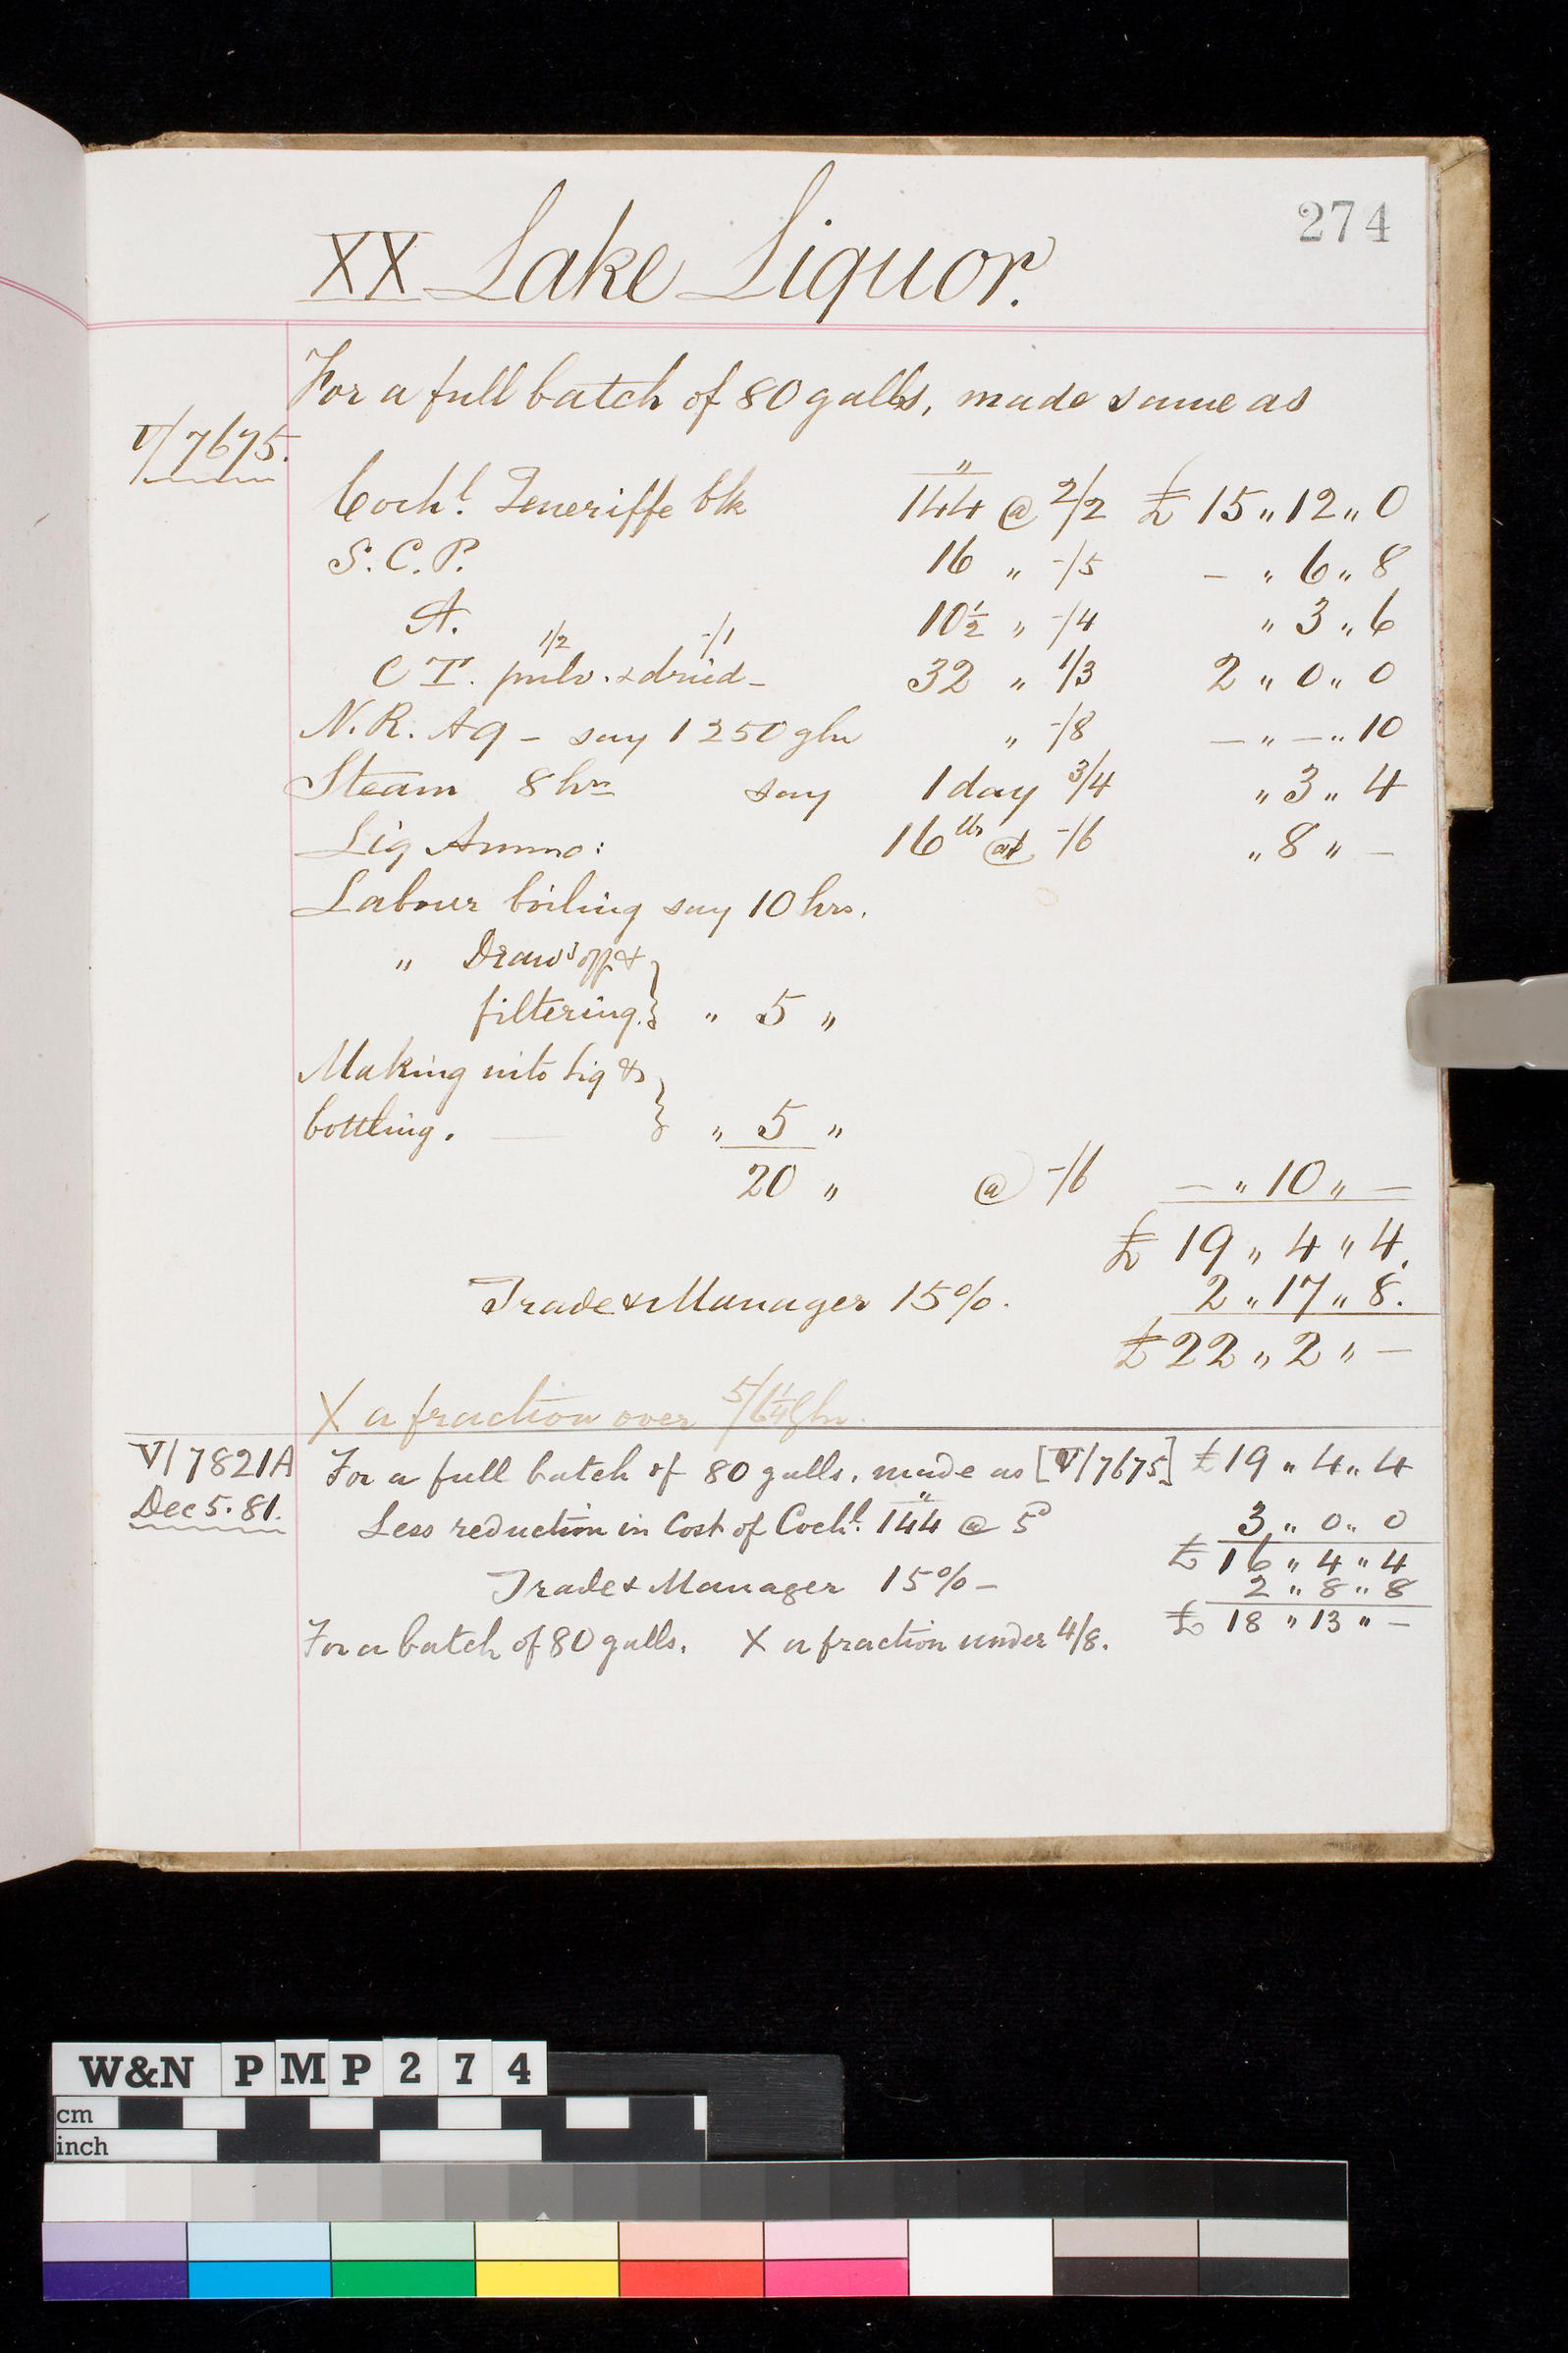 274
XX Lake Liquor.
For a full batch of 80 galls, made same as
V/7675.
Cochl. Teneriffe blk 144 @ 2/2 £ 15 " 12 " 0
S.C.P. 16 " -/5 - " 6 " 8
A. 10½ " -/4 " 3 " 6
1/2 -/1
C T. pulv. & dried - 32 " 1/3 2 " 0 " 0
N.R. Aq - say 1250 gln " -/8 - " - " 10
Steam 8 hrs say 1 day 3/4 " 3 " 4
Liq Ammo: 16 lbs @ -/6 " 8 " -
Labour boiling say 10 hrs.
" Drawg off &
filtering. } " 5 "
Making into Liq &
bottling. } " 5 "
20 " @ -/6 - " 10 " -
£ 19 " 4 " 4.
Trade & Manager 15%. 2 " 17 " 8.
£ 22 " 2 " -
X a fraction over
V/7821A For a full batch of 80 galls, made as [V/7675] £19 " 4 " 4
Dec 5. 81. Less reduction in Cost of Cochl. 144 @ 5D 3 " 0 " 0
£ 16 " 4 " 4
Trade & Manager 15% - 2 " 8 " 8
£ 18 " 13 " -
For a batch of 80 galls. X a fraction under 4/8.
W&N PMP 274
cm
inch